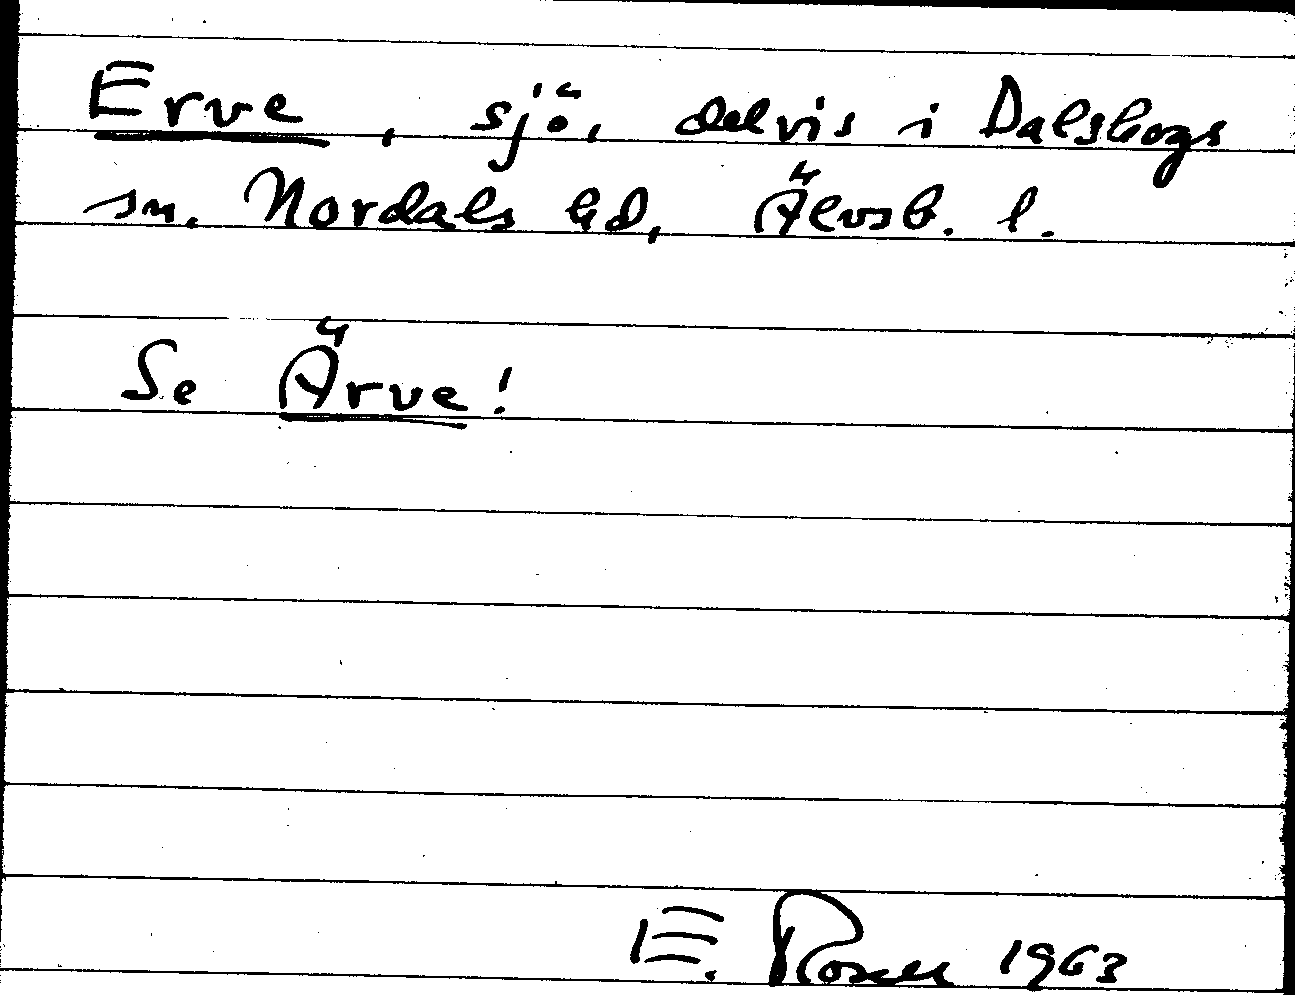 Erve, sjö, delvis i Dalskogs
sn. Nordals hd, Älvsb. l.
Se Ärve!
E. Rosell 1963